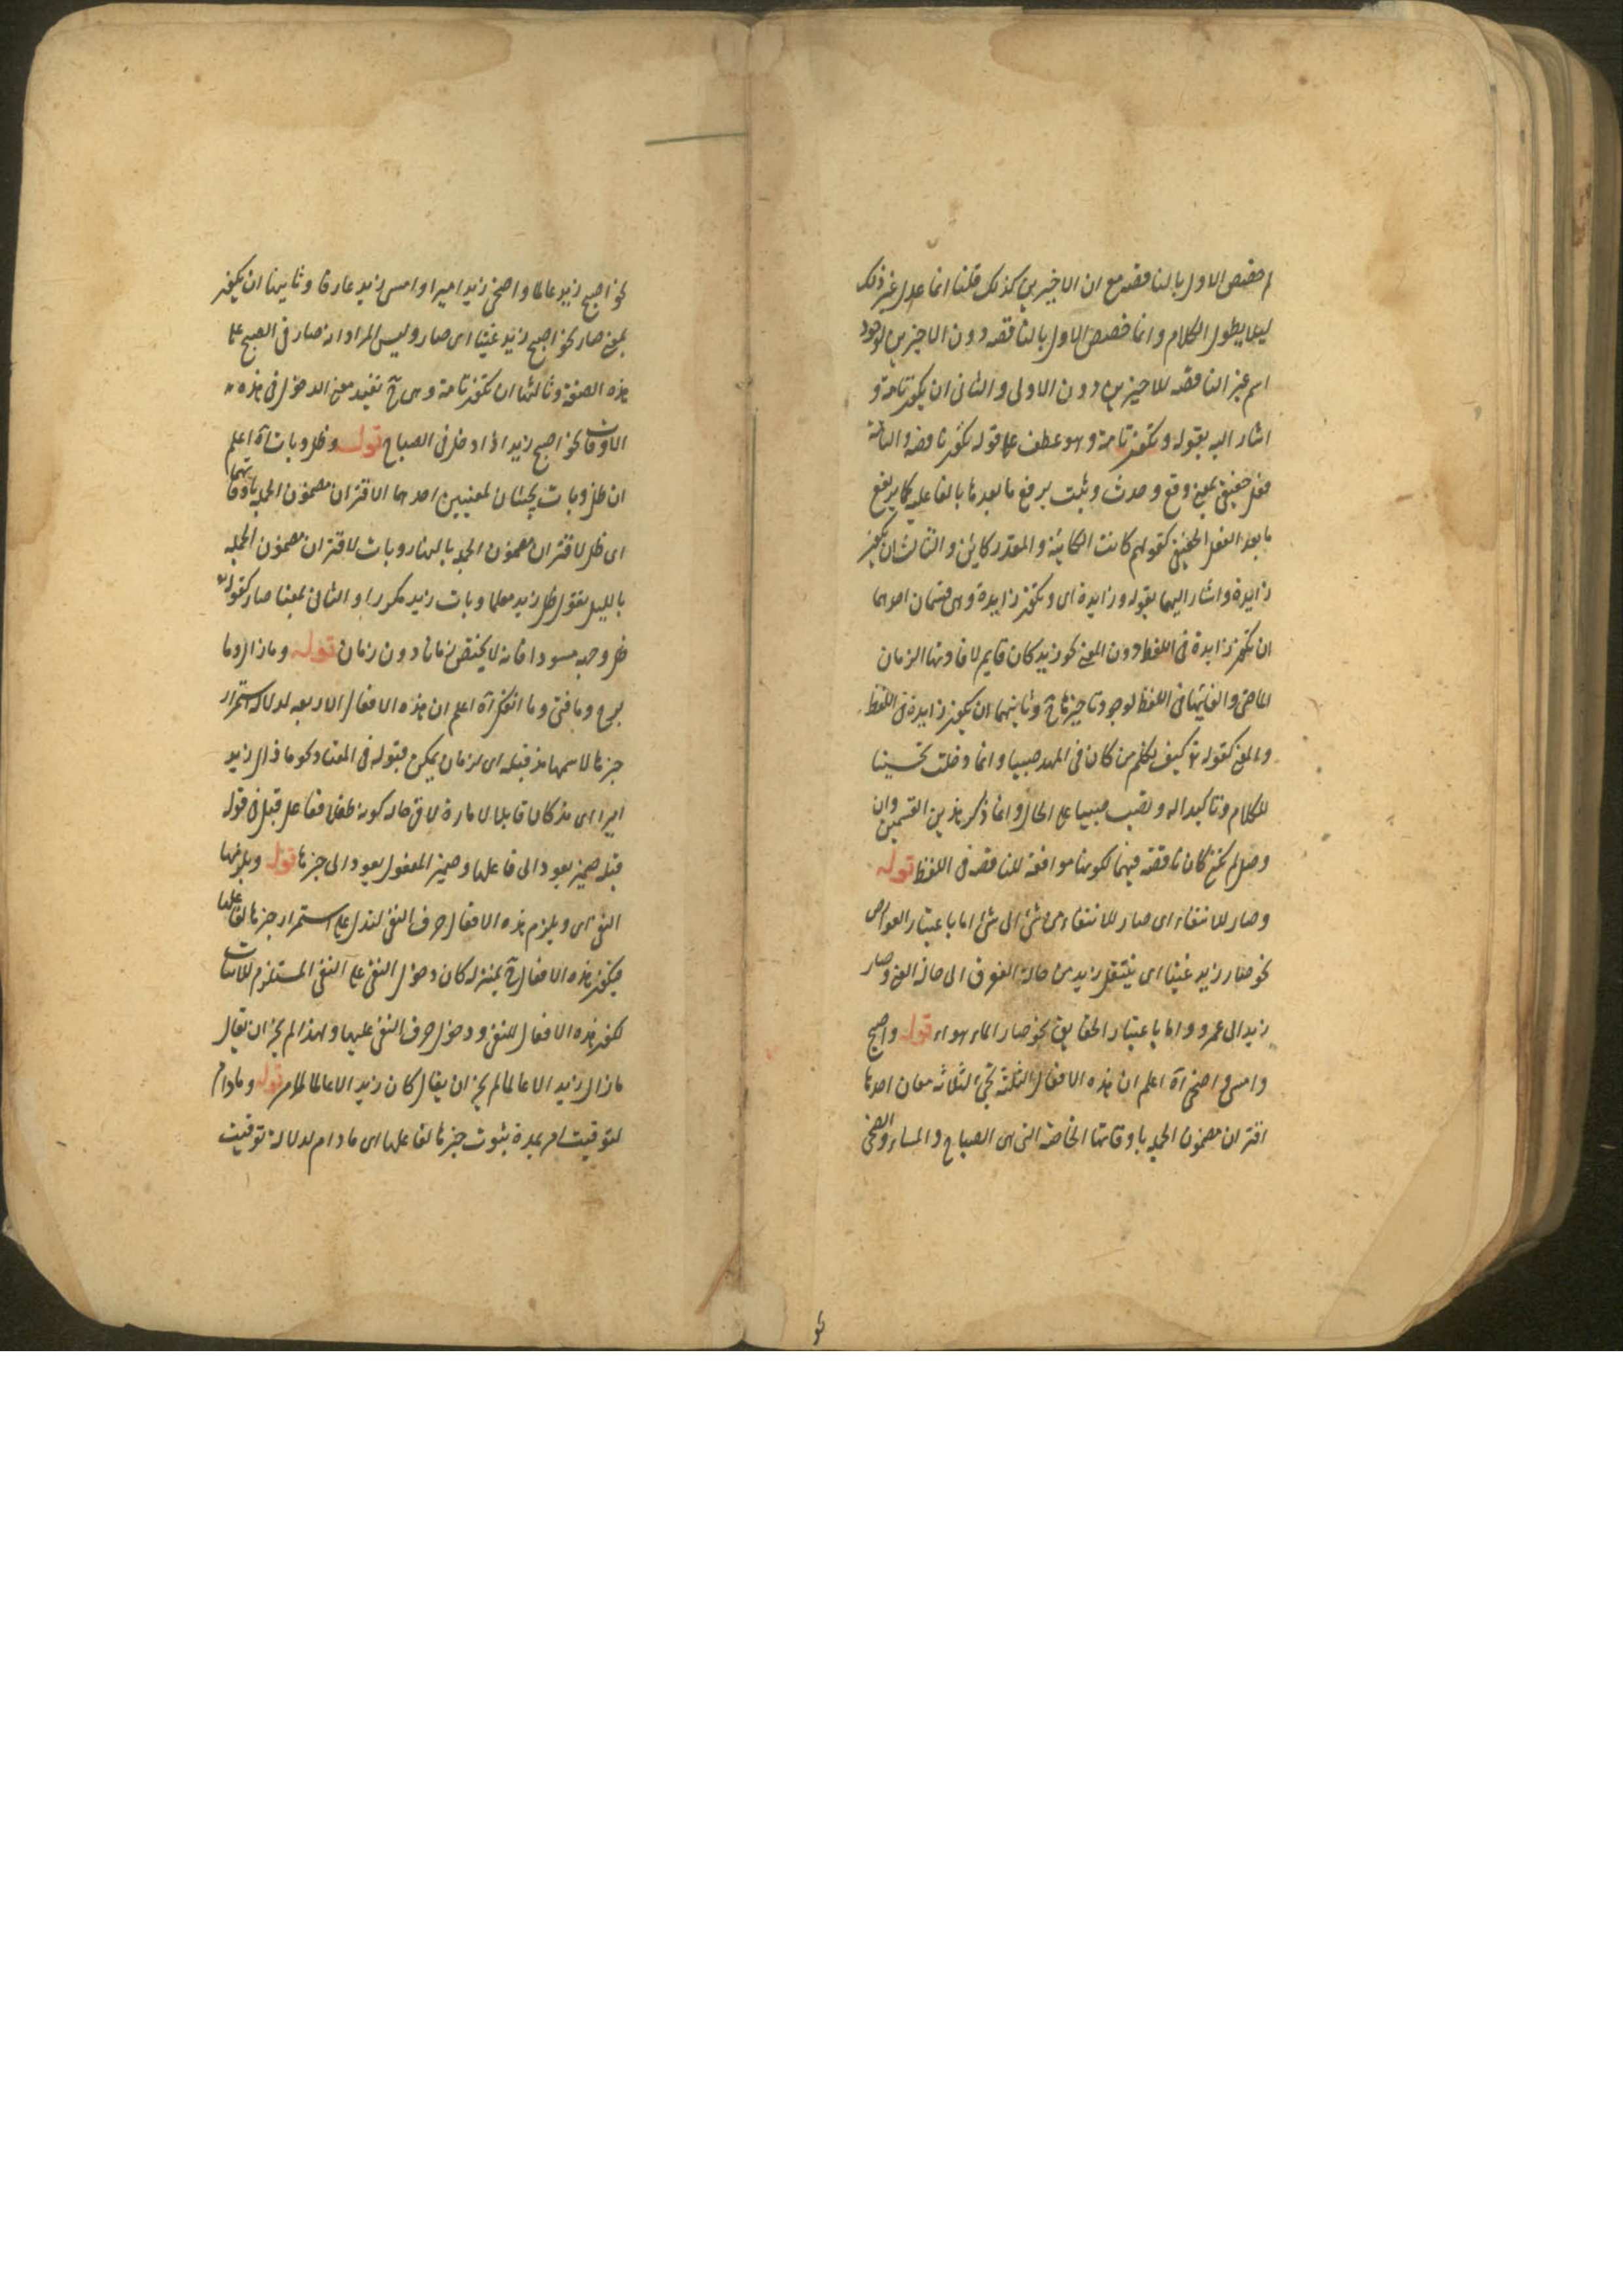 لم خصص الاول بالناقصه مع ان الاخيرين كذلك قلنا انما عدل غير ذلك
ليلا يطول الكلام وانما خصص الاول بالناقصه دون الاخيرين لوجود
اسم غير الناقصه للاخيرين دون الاولى والثانى ان يكون تامة و
اشار اليه بقوله وتكون تامة وهو عطف على قوله تكون ناقصة والتامة
فعل حقيقى بمعنى وقع وحدث وثبت يرفع ما بعدها بالفاعلية كما يرفع
ما بعد الفعل الحقيقى كقولهم كانت الكائنة والمقدر كاين والثالث ان يكون
زايدة واشار اليها بقوله وزايدة اى وتكون زايدة وهى قسمان احدهما
ان تكون زايدة فى اللفظ دون المعنى نحو زيد كان قايم لافادتها الزمان
الماضى والغائها فى اللفظ لوجود تاخيرها ح وثانيهما ان يكون زايدة فى اللفظ
والمعنى كقوله تع كيف نكلم من كان فى المهد صبيا وانما دخلت تحسينا
للكلام وتاكيدا له ونصب صبيا على الحال وانما ذكر هذين القسمين وان
وصل لم تكن كان ناقصة فيهما لكونها موافقة للناقصه فى اللفظ قوله
وصار للانتقاء اى صار للانتقاء من شئ الى شئ اما باعتبار العوارض
نحو صار زيد غنيا اى ينتقل زيد من حالة الى حالة الغنى وصار
زيد الى عمرو واما باعتبار الحقايق نحو صار الماء هواء قوله واصبح
وامسى واضحى آه اعلم ان هذه الافعال الثلثة تجئ لثلاثة معان احدها
اقتران مضمون الجملة باوقاتها الخاصة التى هى الصباح والمساء والضحى
نحو اصبح زيد عالما واضحى زيد اميرا وامسى زيد عارفا وثانيها ان يكون
بمعنى صار نحو اصبح زيد غنيا اى صار وليس المراد انه صار فى الصبح على
هذه الصفة وثالثها ان تكون تامة وهى ح تفيد معنى الدخول فى هذه
الاوقات نحو اصبح زيد اذا دخل فى الصباح قوله وظل وبات آه اعلم
ان ظل وبات يجيئان لمعنيين احدهما الاقتران مضمون الجملة باوقاتهما
اى ظل لاقتران مضمون الجملة بالنهار وبات لاقتران مضمون الجملة
بالليل يقول ظل زيد معلما وبات زيد مكررا والثانى بمعنا صار كقوله
ظل وجهه مسودا فانه لا يختص زمانا دون زمان قوله وما زال وما
برح وما فتئ وما انفك آه اعلم ان هذه الافعال الاربعه لدلالة استمرار
خبرها لاسمها مذ قبله اى لزمان يمكن قبوله فى المعتاد نحو ما زال زيد
اميرا اى مذ كان قابلا للامارة لا فى حالة كونه طفلا ففاعل قبل فى قوله
قبله ضمير يعود الى فاعلها وضمير المفعول يعود الى خبرها قوله ويلزمها
النفى اى ويلزم هذه الافعال حرف النفى لتدل على استمرار خبرها لفاعلها
فيكون هذه الافعال ح بمنزله كان دخول النفى على النفى المستلزم للاثبات
لكون هذه الافعال للنفى ودخول حرف النفى عليها ولهذا لم يجز ان يقال
ما زال زيد الا عالما كما لم يجز ان يقال كان زيد الا عالما لما مر قوله وما دام
لتوقيت امر بمدة ثبوت خبرها لفاعلها اى ما دام لدلالة توقيت